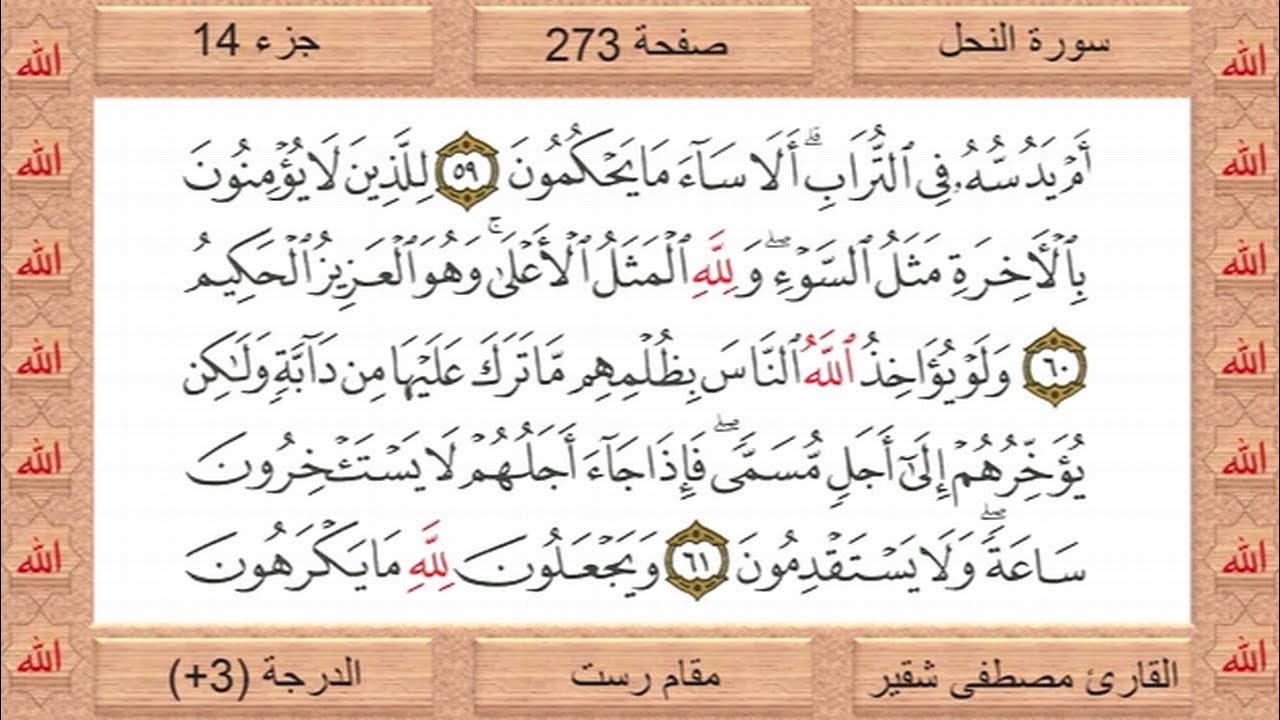 سورة النحل
صفحة 273
جزء 14
أَمْ يَدُسُّهُۥ فِى ٱلتُّرَابِ ۗ أَلَا سَآءَ مَا يَحْكُمُونَ ٥٩ لِلَّذِينَ لَا يُؤْمِنُونَ
بِٱلْـَٔاخِرَةِ مَثَلُ ٱلسَّوْءِ ۖ وَلِلَّهِ ٱلْمَثَلُ ٱلْأَعْلَىٰ ۚ وَهُوَ ٱلْعَزِيزُ ٱلْحَكِيمُ
٦٠ وَلَوْ يُؤَاخِذُ ٱللَّهُ ٱلنَّاسَ بِظُلْمِهِم مَّا تَرَكَ عَلَيْهَا مِن دَآبَّةٍ وَلَـٰكِن
يُؤَخِّرُهُمْ إِلَىٰٓ أَجَلٍ مُّسَمًّى ۖ فَإِذَا جَآءَ أَجَلُهُمْ لَا يَسْتَـْٔخِرُونَ
سَاعَةً ۖ وَلَا يَسْتَقْدِمُونَ ٦١ وَيَجْعَلُونَ لِلَّهِ مَا يَكْرَهُونَ
القارئ مصطفى شقير
مقام رست
الدرجة (3+)
الله
الله
الله
الله
الله
الله
الله
الله
الله
الله
الله
الله
الله
الله